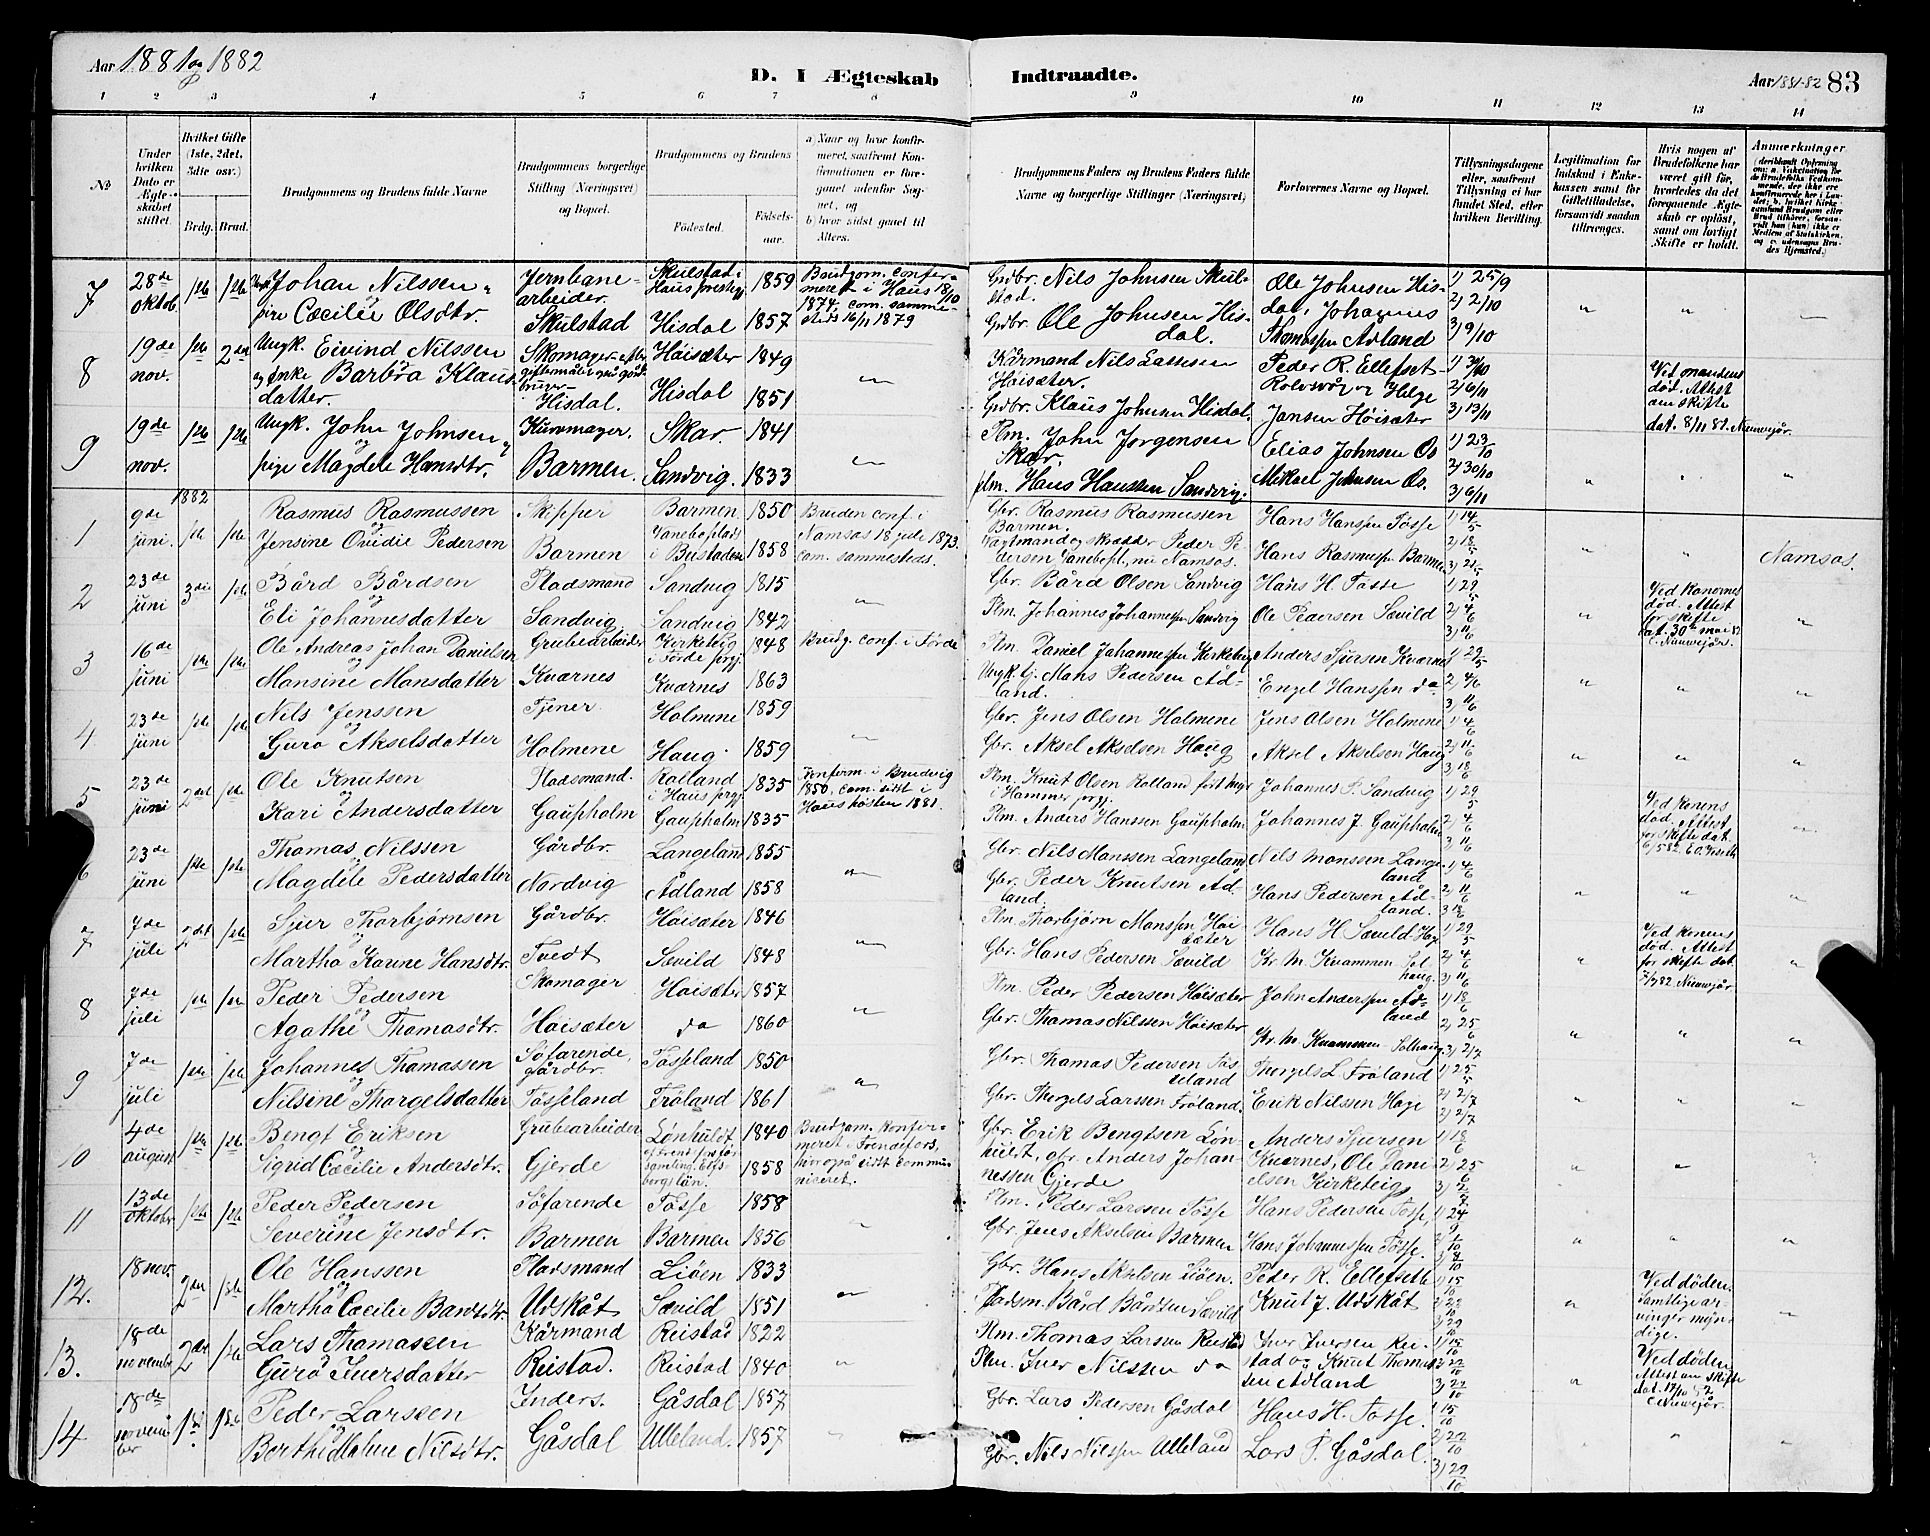 Aar 1881 og 1882
D. I Ægteskab Indtraadte.
Aar 1881-82 83
1 2 3 4 5 6 7 8 9 10 11 12 13 14
No
Under hvilken Dato er Ægteskabet stiftet.
Hvilket Gifte (1ste, 2det, 3die osv.)
Brdg. Brud.
Brudgommens og Brudens fulde Navne
Brudgommens borgerlige Stilling (Næringsvei) og Bopæl.
Brudgommens og Brudens
Fødested.
Fødselsaar.
a) Naar og hvor konfirmeret, saafremt Konfirmationen er foregaaet udenfor Sognet, og
b) hvor sidst gaaet til Alters.
Brudgommens Faders og Brudens Faders fulde Navne og borgerlige Stillinger (Næringsvei)
Forlovernes Navne og Bopæl.
Tillysningsdagene eller, saafremt Tillysning ei har fundet Sted, efter hvilken Bevilling.
Legitimation for Indskud i Enkekassen samt for Giftetilladelse, forsaavidt saadan tiltrænges.
Hvis nogen af Brudefolkene har været gift før, hvorledes da det foregaaende Ægteskab er opløst, samt om lovligt Skifte er holdt.
Anmærkninger
7 28de oktob. 1ste 1ste Ungk. Johan Nilssen Jernbanearbeider. Skulstad i Haus prestegj. 1859 Brudgom. confirmeret i Haus 18/10 1874, com. sammesteds 16/11 1879 Grdbr. Nils Johnsen Skulstad. Ole Johnsen Hisdal, Johannes 1) 25/9 2) 2/10
pige Cæcilie Olsdtr. Skulstad Hisdal 1857 Grdbr. Ole Johnsen Hisdal. Thomassen Adland 3) 9/10
8 19de nov. 1ste 2den Ungk. Eivind Nilssen Skomager Høisæter 1849 Kårmand Nils Høisæter. Peder R. Ellefset 1) 30/10
og Enke Barbra Klausdatter. Hisdal. Hisdal 1851 Grdbr. Klaus Johnsen Hisdal. Helge Jansen Høisæter 2) 6/11 3) 13/11 Ved mandens død. Attest om skifte dat. 8/11 81.
9 19de nov. 1ste 1ste Ungk. John Johnsen Kurvmager. Skar. 1841 Plm. John Jørgensen Skar. Elias Johnsen Os 1) 23/10
og pige Magdele Hansdtr. Barmen. Sandvig. 1833 plm. Hans Hanssen Sandvig. Mikael Johnsen Os. 2) 30/10 3) 6/11
1882
1 9de juni. 1ste 1ste Rasmus Rasmussen Skipper Barmen 1850 Bruden conf. i Namsos 18 jude 1873. com. sammesteds. Gbr. Rasmus Rasmussen Barmen. Hans Hanssen Tøsse 1) 14/5
og Jensine Ovidie Pedersen Barmen 1858 Peder Pedersen nu Namsos. Hans Rasmussen Barmen 2) 18/5 3) 21/5 Namsos.
2 23de juni 3die 1ste Bård Bårdsen Pladsmand Sandvig 1815 Gbr. Bård Olsen Sandvig Hans H. Tøsse 1) 29/5
og Eli Johannesdatter Sandvig Sandvig 1842 Plm. Johannes Johannessen Sandvig Ole Pedersen Sævild 2) 4/6 3) 11/6 Ved konornes død. Attest for skifte dat. 30te mai 82
3 16de juni 1ste 1ste Ole Andreas Johan Danielsen Grubearbeider Kirketeig i Førde prgj. 1848 Brudg. conf. i Førde Plm. Daniel Johannessen Kirketeig Anders Sjursen Kværnes 1) 29/5
og Monsine Monsdatter Kværnes Kværnes 1863 Ungk. G. Mons Pedersen Ådland. Engel Hanssen do 2) 4/6 3) 11/6
4 23de juni 1ste 1ste Nils Jenssen Tjener Holmene 1859 Gbr. Jens Olsen Holmene Jens Olsen Holmene 1) 4/6
og Guro Akselsdatter Holmene Haug 1859 Gbr. Aksel Akselsen Haug Aksel Akselsen Haug 2) 11/6 3) 18/6
5 23de juni 2det 1ste Ole Knutsen Pladsmand. Rolland i Haus prgj. 1835 Konferm. i Brudvig 1850, com. sidst i Haus høsten 1881. Plm. Knut Olsen Rolland i Hammer prgj. Johannes P. Sandvig 1) 29/5
og Kari Andersdatter Gaupholm Gaupholm 1835 Plm. Anders Hanssen Gaupholm Johannes J. Gaupholm 2) 4/6 3) 11/6 Ved konens død. Attest for skifte dat. 6/5 82.
6 23de juni 1ste 1ste Thomas Nilssen Gårdbr. Langeland 1855 Gbr. Nils Monssen Langeland Nils Monssen Langeland 1) 4/6
og Magdele Pedersdatter Nordvig Ådland 1858 Gbr. Peder Knutsen Adland. Hans Pedersen Adland. 2) 11/6 3) 18/6
7 7de juli 2det 1ste Sjur Thorbjørnsen Gårdbr. Høisæter 1846 Plm. Thorbjørn Monssen Høisæter Hans H. Sævild 1) 29/5
og Martha Karine Hansdtr. Tvedt Sævild 1848 Gbr. Hans Pedersen Sævild Kr. M. Kvammen Solhaug 2) 4/6 3) 11/6 Ved konens død. Attest for skifte dat. 7/7 82.
8 7de juli 1ste 1ste Peder Pedersen Skomager Høisæter 1857 Plm. Peder Pedersen Høisæter John Andersen Ådland 1) 18/6
og Agathe Thomasdtr. Høisæter do 1860 Gbr. Thomas Nilssen Høisæter Kr. M. Kvammen Solhaug 2) 25/6 3) 2/7
9 7de juli 1ste 1ste Johannes Thomassen Søfarende, gårdbr. Tøsseland 1850 Gbr. Thomas Pedersen Tøsseland Thorgels L. Frøland 1) 25/5
og Nilsine Thorgelsdatter Tøsseland Frøland 1861 Gbr. Thorgels Larssen Frøland. Erik Nilssen Hage 2) 2/7 3) 2/7
10 4de august 1ste 1ste Bengt Eriksen Grubearbeider Lønhuldt 1840 Brudgom. konfirmeret i herpå sidst communiceret. Gbr. Erik Bengtsen Anders Sjursen 1) 18/6
og Sigrid Cæcilie Andersdtr. Gjerde 1858 gbr. Anders Johannessen Gjerde Kværnes, Ole Danielsen Kirketeig 2) 25/6 3) 2/7
11 13de oktober 1ste 1ste Peder Pedersen Søfarende Tøsse 1858 Plm. Peder Larssen Tøsse Hans Pedersen Tøsse, 1) 24/9
og Severine Jensdtr. Barmen Barmen 1856 Gbr. Jens Akselsen Barmen Hans Johannessen Tøsse. 2) 1/10 3) 8/10
12. 18 nov. 2den 1ste Ole Hanssen Pladsmand Liøen 1833 Gbr. Hans Akselsen Liøen. Peder R. Ellefseth 1) 15/10
Martha Cæcilie Bårdsdtr. Udskåt Sævild 1851 Pladsm. Bård Bårdsen Sævild Knut J. Udskåt 2) 22/10 3) 29/10 Ved døden. Samtlige arvinger myndige.
13. 18de november 2den 1ste Lars Thomassen Kårmand Reistad 1822 Plm. Thomas Larsen Reistad Iver Iversen Reistad og Knut Thomassen Adland 1) 15/10
Guro Iversdatter Reistad. Reistad 1840 Plm. Iver Nilssen do 2) 22/10 3) 22/10 Ved døden Attest om skifte dat. 17/10 82
14 18de november 1ste 1ste Peder Larssen Inders. Gåsdal 1857 Gbr. Lars Pedersen Gåsdal Hans H. Tøsse. 1) 15/10
og Berthe Malene Nilsdtr. Gåsdal Ulleland. 1857 Gbr. Nils Nilssen Ulleland Lars P. Gåsdal. 2) 22/10 3) 29/10